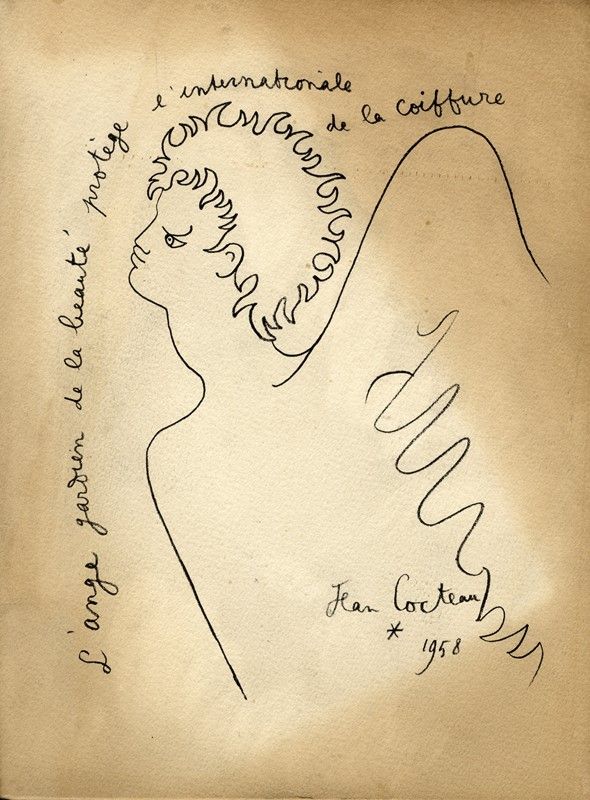 L'ange gardien de la beauté protège
l'internationale
de la coiffure
Jean Cocteau
*
1958